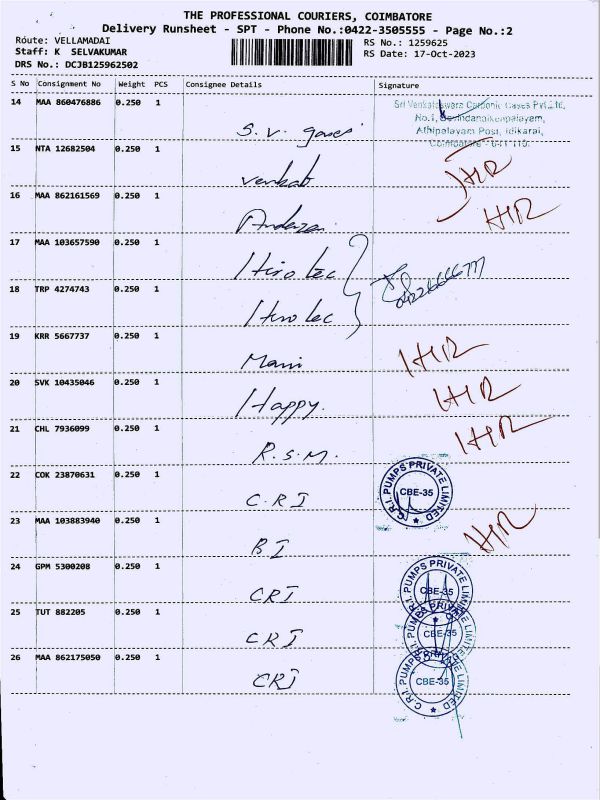 THE PROFESSIONAL COURIERS, COIMBATORE
Delivery Runsheet - SPT - Phone No.:0422-3505555 - Page No.:2
Route: VELLAMADAI
RS No.: 1259625
Staff: K SELVAKUMAR
RS Date: 17-Oct-2023
DRS No.: DCJB125962502
S No Consignment No Weight PCS Consignee Details Signature
14 MAA 860476886 0.250 1
S.V. gases
Sri Venkateswara Carbonic Gases Pvt Ltd,
No.1, Govindanaickenpalayam,
Athipalayam Post, Idikarai,
Coimbatore - 641 110.
15 NTA 12682504 0.250 1
Venkat
IHR
16 MAA 862161569 0.250 1
IHR
17 MAA 103657590 0.250 1
Hiro tec
18 TRP 4274743 0.250 1
Hiro tec
19 KRR 5667737 0.250 1
Mani
IHR
20 SVK 10435046 0.250 1
Happy.
IHR
21 CHL 7936099 0.250 1
R.S.M.
IHR
22 COK 23870631 0.250 1
C.R.I
C.R.I. PUMPS PRIVATE LIMITED
CBE-35
23 MAA 103883940 0.250 1
B I
IHR
24 GPM 5300208 0.250 1
CRI
C.R.I. PUMPS PRIVATE LIMITED
CBE-35
25 TUT 882205 0.250 1
CRI
CBE-35
26 MAA 862175050 0.250 1
CRI
C.R.I. PUMPS PRIVATE LIMITED
CBE-35